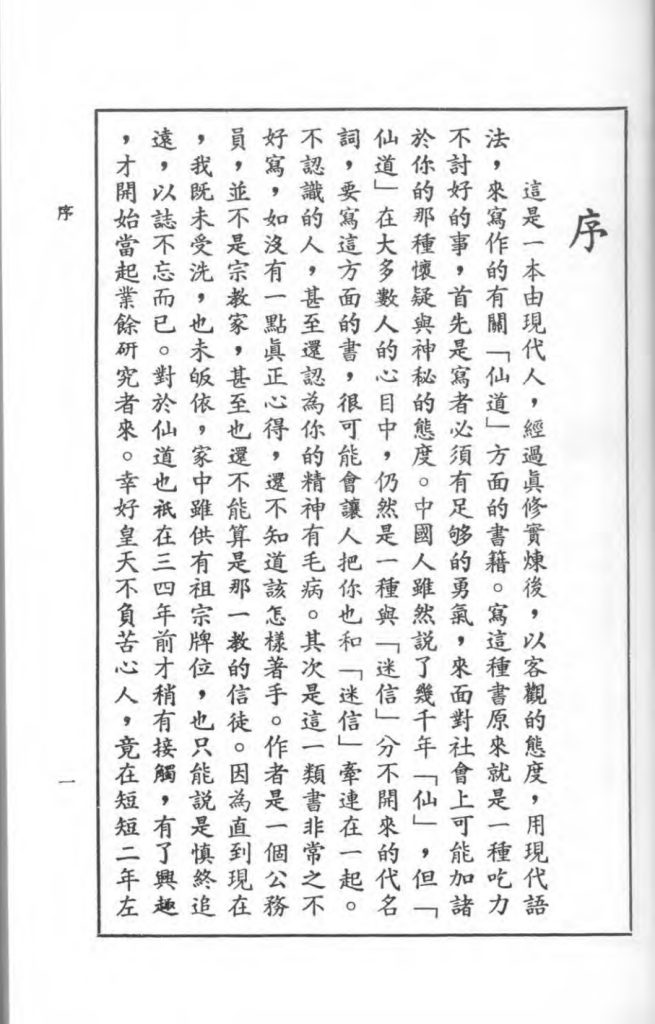 序
這是一本由現代人，經過眞修實煉後，以客觀的態度，用現代語
法，來寫作的有關「仙道」方面的書籍。寫這種書原來就是一種吃力
不討好的事，首先是寫者必須有足够的勇氣，來面對社會上可能加諸
於你的那種懷疑與神秘的態度。中國人雖然説了幾千年「仙」，但「
仙道」在大多數人的心目中，仍然是一種與「迷信」分不開來的代名
詞，要寫這方面的書，很可能會讓人把你也和「迷信」牽連在一起。
不認識的人，甚至還認為你的精神有毛病。其次是這一類書非常之不
好寫，如沒有一點眞正心得，還不知道該怎樣著手。作者是一個公務
員，並不是宗教家，甚至也還不能算是那一教的信徒。因為直到現在
，我既未受洗，也未皈依，家中雖供有祖宗牌位，也只能説是慎終追
遠，以誌不忘而已。對於仙道也祇在三四年前才稍有接觸，有了興趣
，才開始當起業餘研究者來。幸好皇天不負苦心人，竟在短短二年左
序
一